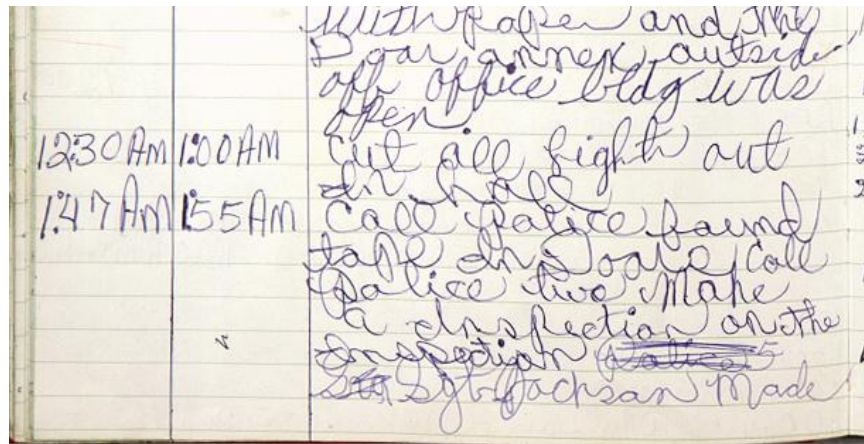 with paper and the
Doar annex outside
off office bldg was
open
12:30 AM 1:00 AM Cut all light out
In hall
1:47 AM 1:55 AM Call Police found
tape In Doare Call
Police two Make
a Inspection on the
Inspection
Sgt Jackson Made